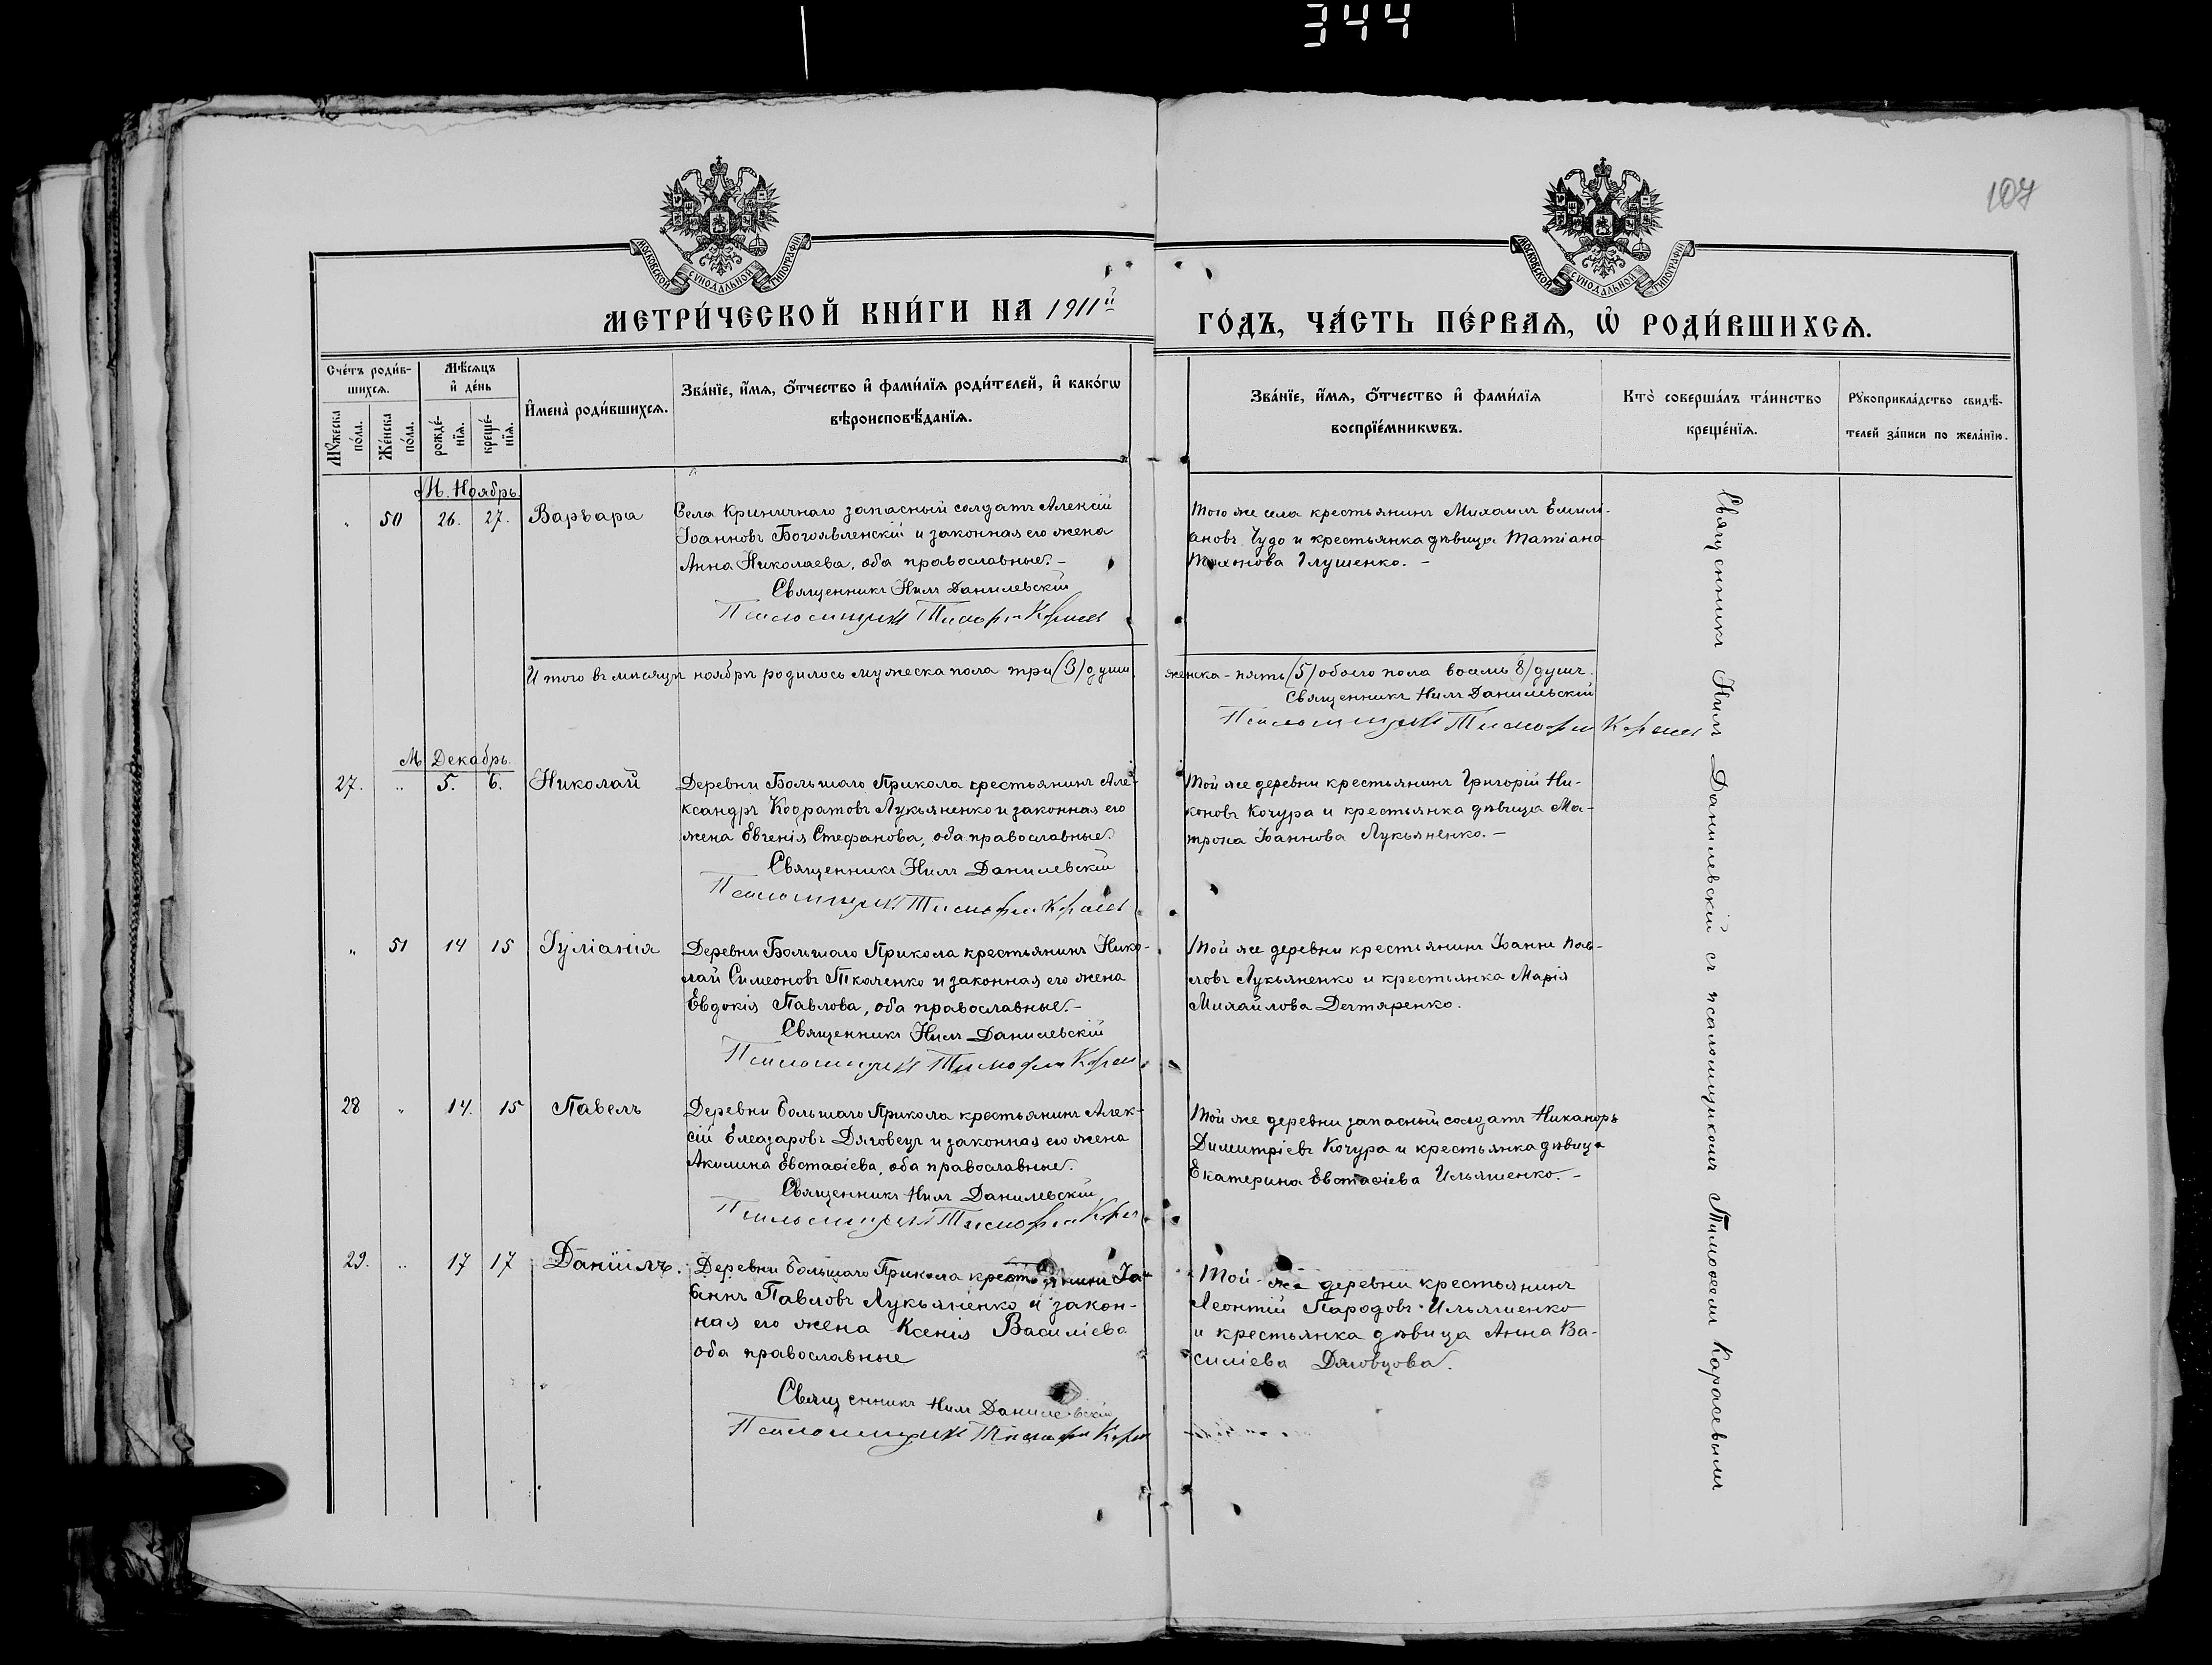 344
107
МОСКОВСКОЙ СѴНОДАЛЬНОЙ ТИПОГРАФІИ
МОСКОВСКОЙ СѴНОДАЛЬНОЙ ТИПОГРАФІИ
МЕТРИ́ЧЕСКОЙ КНИ́ГИ НА 1911й
ГО́ДЪ, ЧА́СТЬ ПЕ́РВАѦ, Ѡ҆ РОДИ́ВШИХСѦ.
Сче́тъ роди́в-
шихсѧ.
Мꙋ́жеска
по́ла.
Же́нска
по́ла.
Мѣ́сѧцъ
и҆ де́нь
рожде́-
нїѧ.
креще́-
нїѧ.
И҆мена̀ роди́вшихсѧ.
Зва́нїе, и҆́мѧ, ѻ҆́тчество и҆ фами́лїѧ роди́телей, и҆ како́гѡ
вѣроисповѣ́данїѧ.
Зва́нїе, и҆́мѧ, ѻ҆́тчество и҆ фами́лїѧ
воспрїе́мникѡвъ.
Кто̀ соверша́лъ та́инство
креще́нїѧ.
Рꙋкоприкла́дство свидѣ́-
телей за́писи по жела́нїю.
М. Ноябрь.
„ 50 26. 27. Варвара
Села Криничнаго запасный солдатъ Алексій
Іоанновъ Богоявленскій и законная его жена
Анна Николаева, оба православные. –
Священникъ Нилъ Данилевскій
Псаломщикъ Тимофей
Того же села крестьянинъ Михаилъ Емили-
ановъ Чудо и крестьянка дѣвица Татіана
Тихонова Глушенко. –
Итого въ мѣсяцѣ ноябрѣ родилось мужеска пола три (3) души
женска – пять (5) обоего пола восемь 8) душъ.
Священникъ Нилъ Данилевскій
Псаломщикъ Тимофей
М. Декабрь.
27. „ 5. 6. Николай
Деревни Большаго Прикола крестьянинъ Але-
ксандръ Кодратовъ Лукьяненко и законная его
жена Евгенія Стефанова, оба православные.
Священникъ Нилъ Данилевскій
Псаломщикъ Тимофей
Той же деревни крестьянинъ Григорій Ни-
коновъ Кочура и крестьянка дѣвица Ма-
трона Іоаннова Лукьяненко. –
„ 51 14 15 Іуліанія
Деревни Большаго Прикола крестьянинъ Нико-
лай Симеоновъ Ткаченко и законная его жена
Евдокія Павлова, оба православные. –
Священникъ Нилъ Данилевскій
Псаломщикъ Тимофей
Той же деревни крестьянинъ Іоаннъ Пав-
ловъ Лукьяненко и крестьянка Марія
Михайлова Дегтяренко.
28 „ 14. 15 Павелъ
Деревни Большаго Прикола крестьянинъ Алек-
сій Елеазаровъ Дяговецъ и законная его жена
Акилина Евстаѳіева, оба православные.
Священникъ Нилъ Данилевскій
Псаломщикъ Тимофей
Той же деревни запасный солдатъ Никаноръ
Димитріевъ Кочура и крестьянка дѣвица
Екатерина Евстаѳіева Ильяшенко. –
29. „ 17 17 Даніилъ.
Деревни Большаго Прикола крестьянинъ Іо-
аннъ Павловъ Лукьяненко и закон-
ная его жена Ксенія Василіева
оба православные
Священникъ Нилъ Данилевскій
Псаломщикъ Тимофей
Той же деревни крестьянинъ
Леонтій Ильяшенко
и крестьянка дѣвица Анна Ва-
силіева Дяговцова.
Священникъ Нилъ Данилевскій съ псаломщикомъ Тимоѳеемъ Карасевымъ